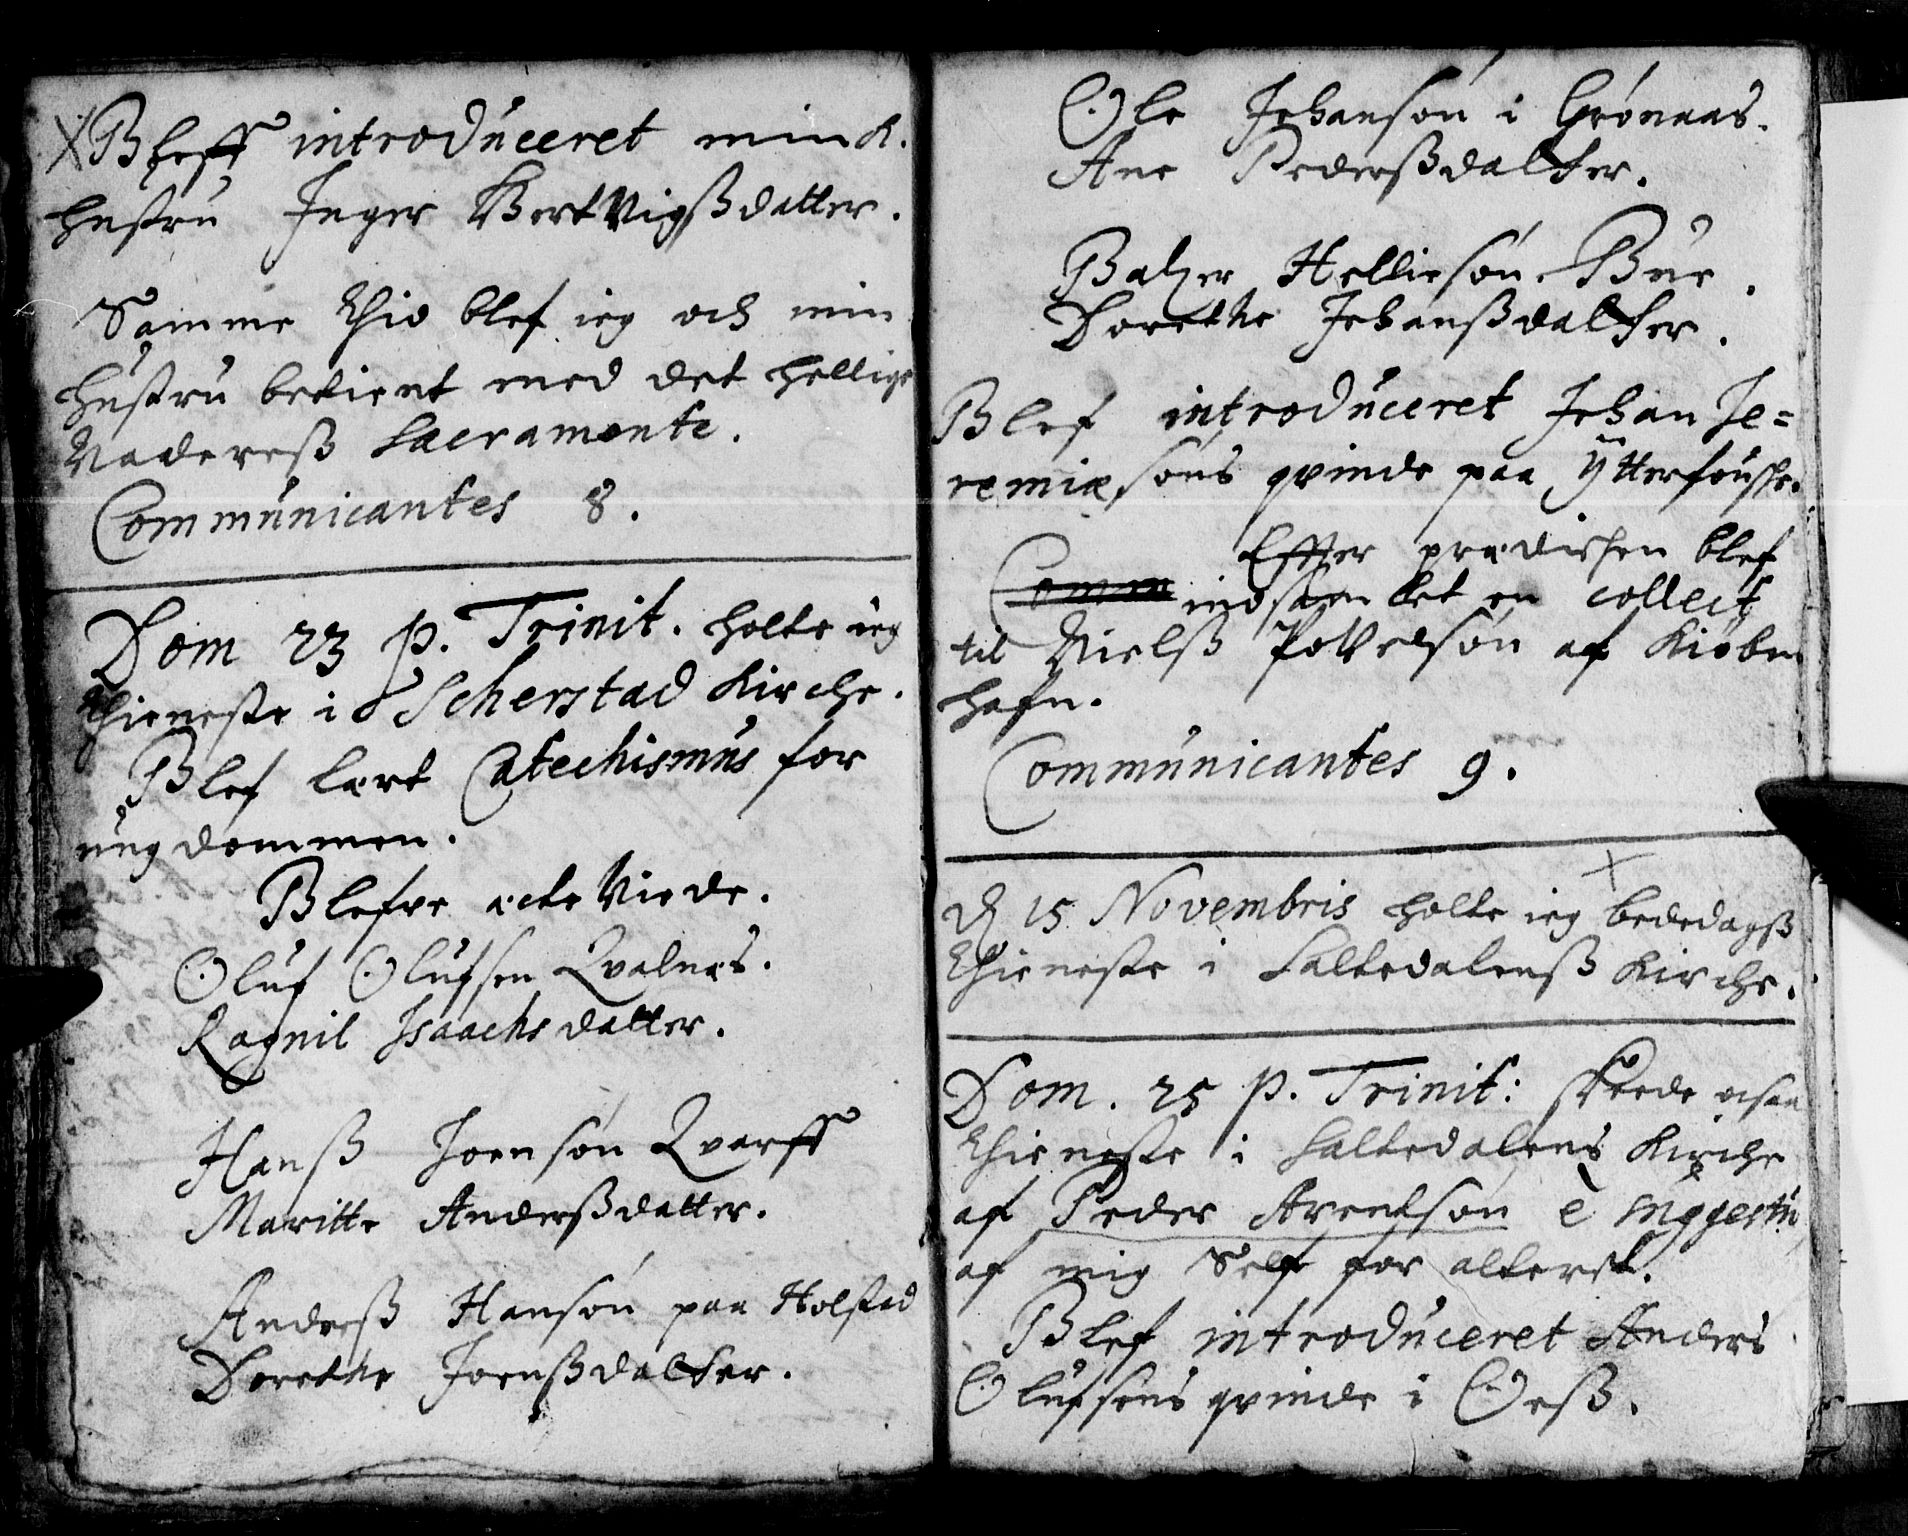 Bleff introduceret min K.
hustru Inger Hertvigßdatter.
Samme thid blef ieg och min
hustru betient med det hellige
Nadereß Sacramente.
Communicantes 8.
Dom 23 p. Trinit. holte ieg
thieneste i Scherstad Kirche.
Blef lært Catechismus for
ungdommen.
Blefve ecte Viede.
Oluf Olufsen Qvalnes.
Ragnil Isaachsdatter.
Hanß Joensøn Qvarff
Maritte Anderßdatter.
Anderß Hansøn paa Holstad
Dorethe Joenßdatter.
Ole Johansøn i Grønaas.
Ane Pederßdatter.
Balzer Helliesøn Bue.
Dorethe Johanßdatter.
Blef introduceret Johan Je=
remiæsøns qvinde paa Ytterfouske.
Effter prædichen blef
Comm indsamlet en collect
til Nielß Povelsøn af Kiøben
hafn.
Communicantes 9.
D 15 Novembris holte ieg bededagß
thieneste i Saltedalenß Kirche.
Dom. 25 p. Trinit: skeede ocsaa
thieneste i Saltedalens Kirche
af Peder Arentsøn è suggestu
af mig Self for alteret.
Blef introduceret Anders
Olufsens qvinde i Oeß.